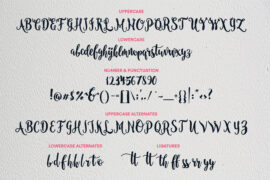 UPPERCASE
ABCDEFGHIJKLMNOPQRSTUVWXYZ
LOWERCASE
abcdefghijklmnopqrstuvwxyz
NUMBER & PUNCTUATION
1234567890
UPPERCASE ALTERNATES
ABCDEFGHIJKLMNOPQRSTUVWXYZ
LOWERCASE ALTERNATES LIGATURES
b d f h k l r t o tt th ff ss rr yy